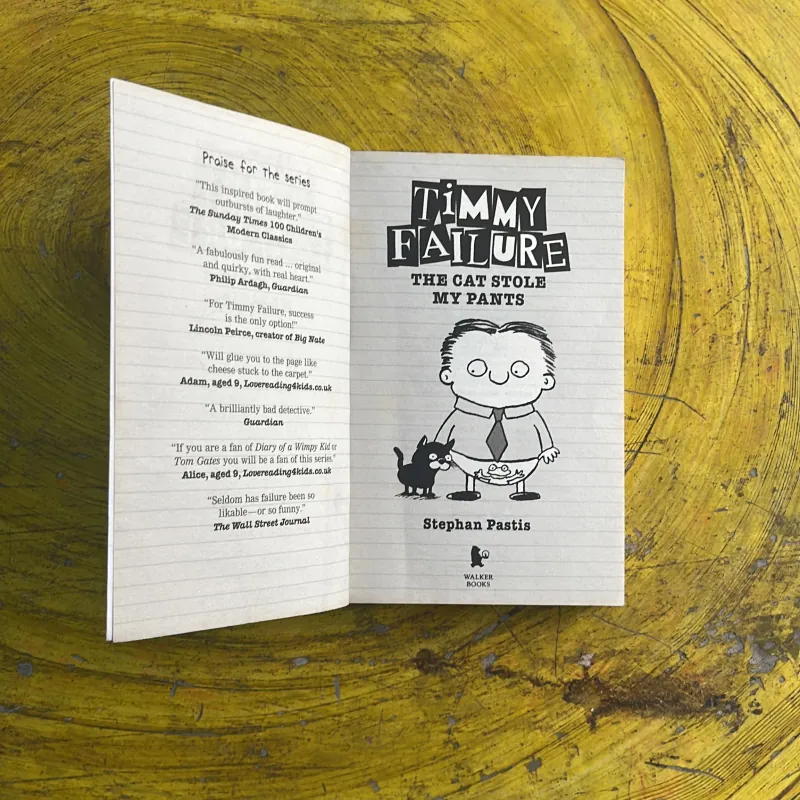 Praise for The series
"This inspired book will prompt
outbursts of laughter."
The Sunday Times 100 Children's
Modern Classics
"A fabulously fun read ... original
and quirky, with real heart."
Philip Ardagh, Guardian
"For Timmy Failure, success
is the only option!"
Lincoln Peirce, creator of Big Nate
"Will glue you to the page like
cheese stuck to the carpet."
Adam, aged 9, Lovereading4kids.co.uk
"A brilliantly bad detective."
Guardian
"If you are a fan of Diary of a Wimpy Kid or
Tom Gates you will be a fan of this series."
Alice, aged 9, Lovereading4kids.co.uk
"Seldom has failure been so
likable—or so funny."
The Wall Street Journal
TiMMY
FAILURE
THE CAT STOLE
MY PANTS
Stephan Pastis
WALKER
BOOKS